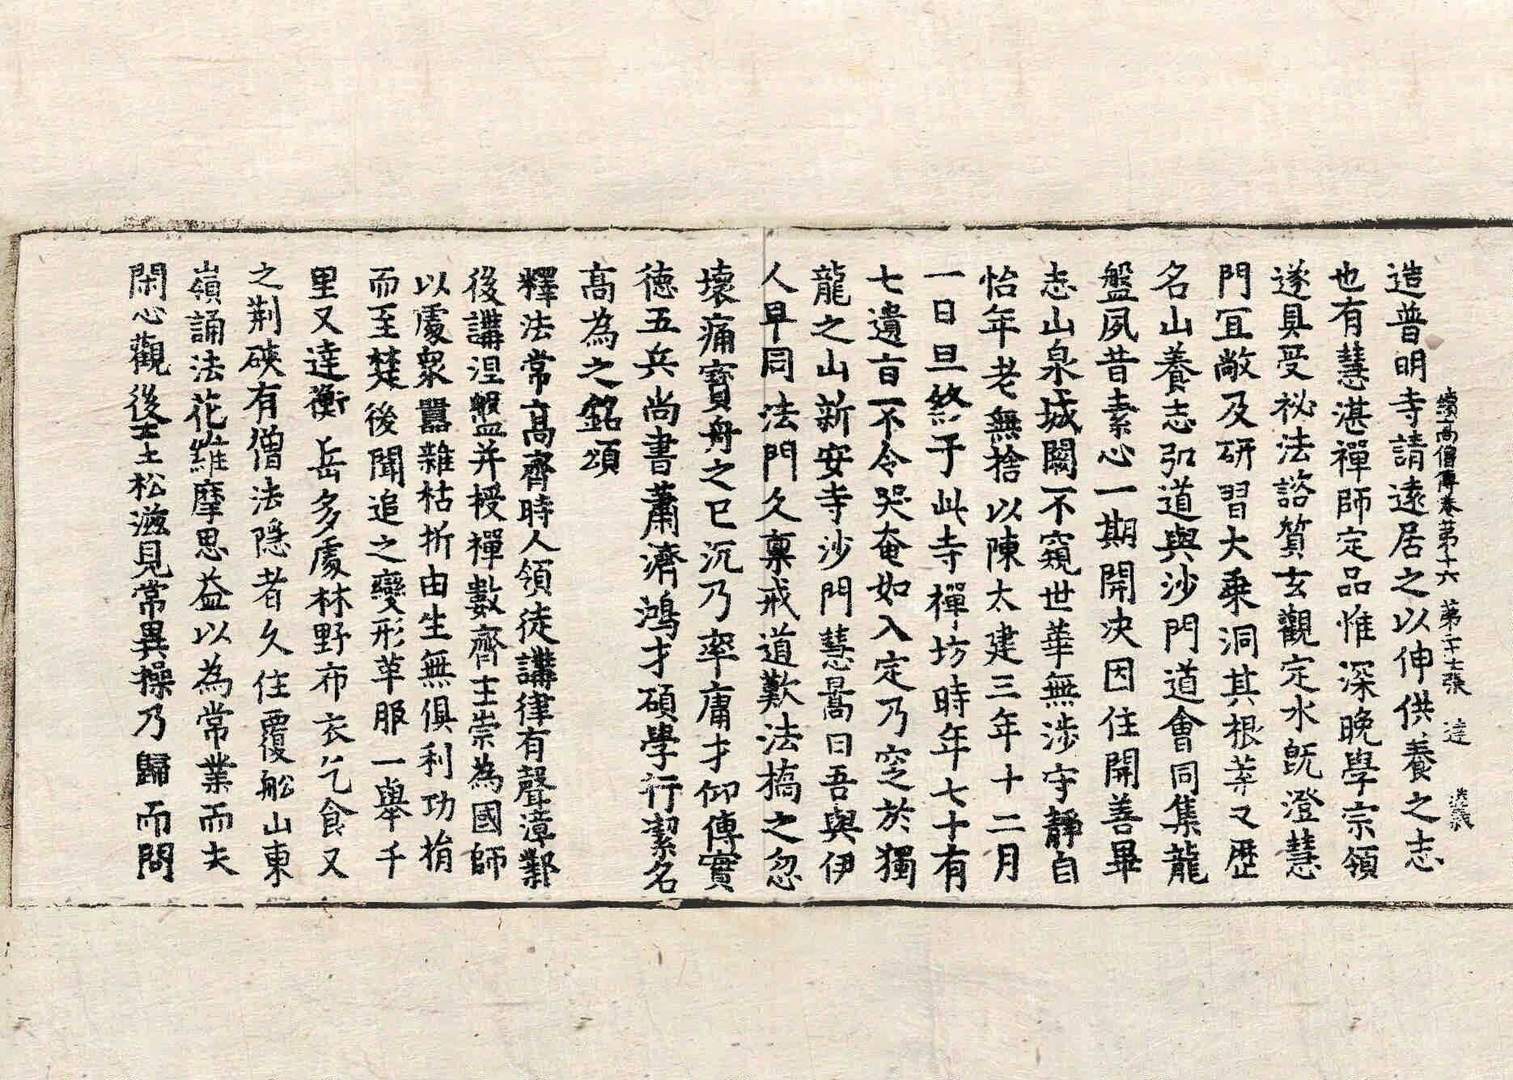 續高僧傳卷第十六 第二十七張 達
造普明寺請遠居之以伸供養之志
也有慧湛禪師定品惟深晚學宗領
遂具受祕法諮質玄觀定水既澄慧
門宜敞及研習大乘洞其根莖又歷
名山養志弘道與沙門道會同集龍
盤夙昔素心一期開決因住開善畢
志山泉城闕不窺世華無涉守靜自
怡年老無捨以陳太建三年十二月
一日旦終于此寺禪坊時年七十有
七遺言不令哭奄如入定乃窆於獨
龍之山新安寺沙門慧暠曰吾與伊
人早同法門久稟戒道歎法橋之忽
壞痛寶舟之已沉乃率庸才仰傳實
德五兵尚書蕭濟鴻才碩學行潔名
高為之銘頌
釋法常高齊時人領徒講律有聲漳鄴
後講涅槃并授禪數齊王崇為國師
以處眾囂雜枯折由生無俱利功捐
而至楚後聞追之變形革服一舉千
里又達衡岳多處林野布衣乞食又
之荆硤有僧法隱者久住覆舩山東
嶺誦法花維摩思益以為常業而夫
閑心觀後至松滋見常異操乃歸而問